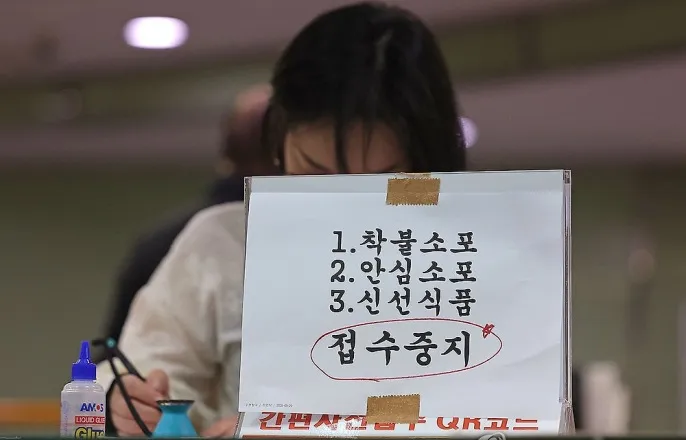 1.착불소포
2.안심소포
3.신선식품
접수중지
간편사전접수 QR코드
AMOS
LIQUID GLUE
Glue